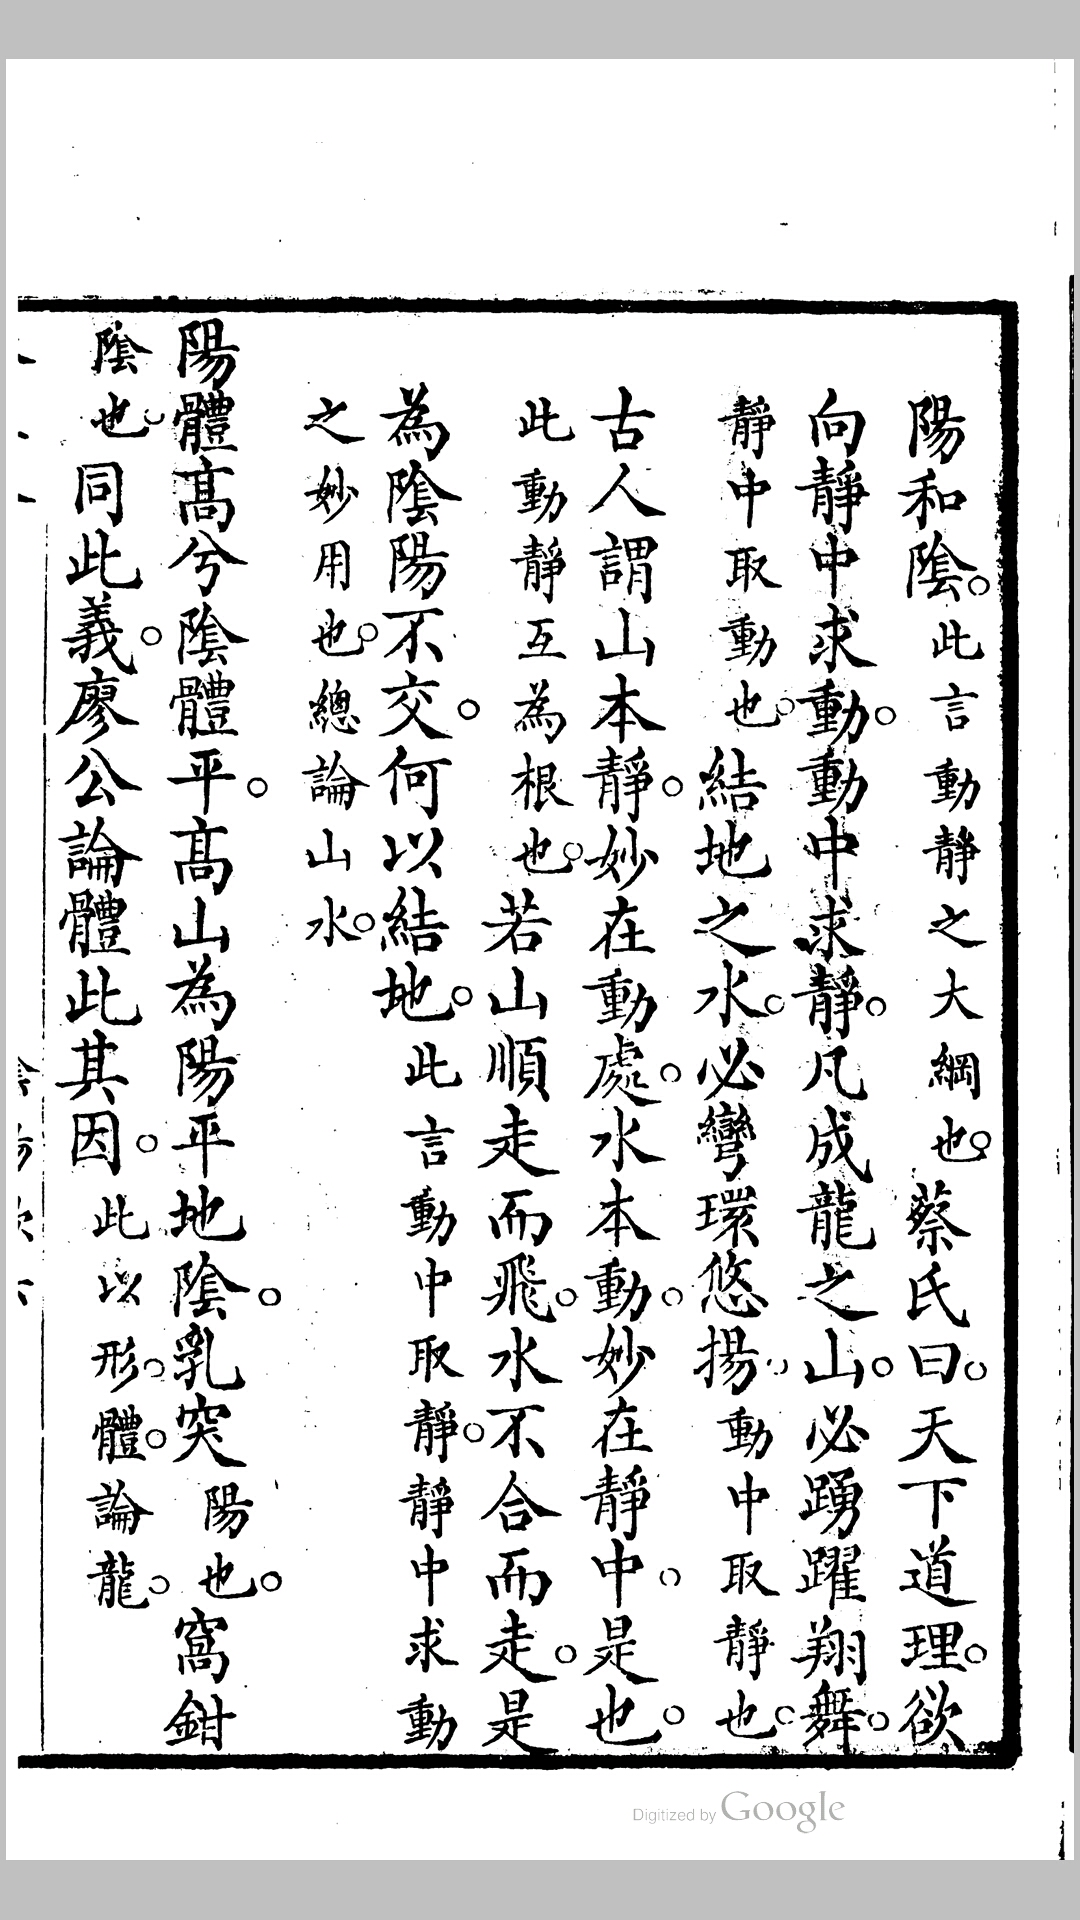 陽和陰。此言動靜之大綱也。蔡氏曰。天下道理。欲
向靜中求動。動中求靜。凡成龍之山。必踴躍翔舞。
靜中取動也。結地之水。必彎環悠揚。動中取靜也。
古人謂山本靜。妙在動處。水本動。妙在靜中。是也。
此動靜互為根也。若山順走而飛。水不合而走。是
為陰陽不交。何以結地。此言動中取靜。靜中求動
之妙用也。總論山水。
陽體高兮陰體平。高山為陽平地陰。乳突陽也。窩鉗
陰也。同此義。廖公論體此其因。此以形。體。論龍。
Digitized by Google